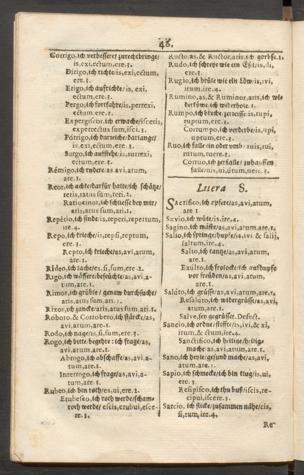 48.
Corrigo, ich verbessere/ zurechtbringe/
is, exi, ectum, ere. 3.
Dirigo, ich richte/ is, exi, ectum,
ere. 3.
Erigo, ich auffrichte/ is, exi,
ectum, ere. 3.
Pergo, ich fortfahre/ is, perrexi,
ectum, ere. 3.
Expergiscor, ich erwache/ isceris,
experrectus sum, isci. 3.
Porrigo, ich darreiche
is, exi, ectum, ere. 3.
Surgo, ich auffstehe/ is, surrexi,
ectum, ere. 3.
Rémigo, ich rudere/ as, avi, atum,
are. 1.
Reor, ich achte darfür halte/ ich schätze/
reris, ratus sum, reri. 2.
Ratiocinor, ich schliesse
aris, atus sum, ari. 1.
Repério, ich finde/ is, reperi, repertum,
ire. 4.
Repo, ich krieche/ is, repsi, reptum,
ere. 3.
Repto, ich krieche/ as, avi, atum,
are. 1.
Rideo, ich lache/ es, si, sum, ere. 2.
Rigo, ich wässere/ befeuchte/ as, avi, a-
tum, are. 1.
Rimor, ich grüble/ genaw durchsuche/
aris, atus sum, ari. 1.
Rixor, ich zancke/ aris, atus sum, ari. 1.
Roboro, & Corroboro, ich stärcke/ as,
avi, atum, are. 1.
Rodo, ich nage/ is, si, sum, ere. 3.
Rogo, ich bitte/ begehre/ ich frage/ as,
avi, atum, are. 1.
Abrogo, ich abschaffe/ as, avi, a-
tum, are. 1.
Interrogo, ich frage/ as, avi, atum,
are. 1.
Rubeo, ich bin roth/ es, ui, ere. 2.
Erubesco, ich roth werde/ scham-
roth werde/ escis, erubui, esce-
re. 3.
Ructo, as, & Ructor, aris, ich
Rudo, ich schreye wie ein Esel/ is, di,
ere. 3.
Rugio, ich brülle wie ein Löw/ is, ivi,
itum, ire. 4.
Rumino, as, & Ruminor, aris, ich wie-
ich widerhole. 1.
Rumpo, ich breche, zerreisse/ is, rupi,
ruptum, ere. 3.
Corrumpo, ich verderbe/ is, upi,
uptum, ere. 3.
Ruo, ich falle ein oder umb/ is, rui,
ruitum, ruere. 3.
Corruo, ich zerfalle/ zuhauffen
falle/ uis, ui, utum, uere. 3.
Litera S.
Sacrifico, ich opfere/ as, avi, atum,
are. 1.
Sævio, ich wüte/ is, ire. 4.
Sagino, ich mäste/ as, avi, atum, are. 1.
Salio, ich springe/ is, ivi & salij,
saltum, ire. 4.
Salto, ich tantze/ as, avi, atum,
are. 1.
Exulto, ich frolocke/ ich auffhupffe
vor freuden/ as, avi, atum,
are. 1.
Salúto, ich grüsse/ as, avi, atum, are. 1.
Resaluto, ich widergrüsse/ as, avi,
atum, are. 1.
Salve, sey gegrüsset. Defect.
Sancio, ich ordne/ stiffte/ is, ivi, & xi,
itum, & ctum, ire. 4.
Sanctifico, ich heilige/ heilig
mache/ as, avi, atum, are. 1.
Sano, ich heyle/ gesund mache/ as, avi,
atum, are. 1.
Sapio, ich schmecke/ ich bin klug/ is, ui,
ere. 3.
Resipisco, ich thu buß/ iscis, re-
sipui, iscere. 3.
Sarcio, ich flicke, zusammen nähe/ is,
si, tum, ire. 4.
Re-